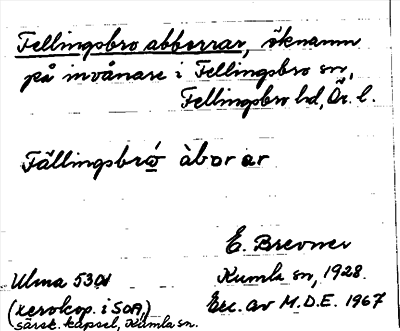 Fellingsbro abborrar, öknamn
på invånare i Fellingsbro sn,
Fellingsbro hd, Ör. l.
Fällingsbró̲ àbor ar
E. Brevner
Ulma 53:1 Kumla sn, 1928.
(xerokop. i SOA, Exc. av M.D.E. 1967
särsk. kapsel, Kumla sn.